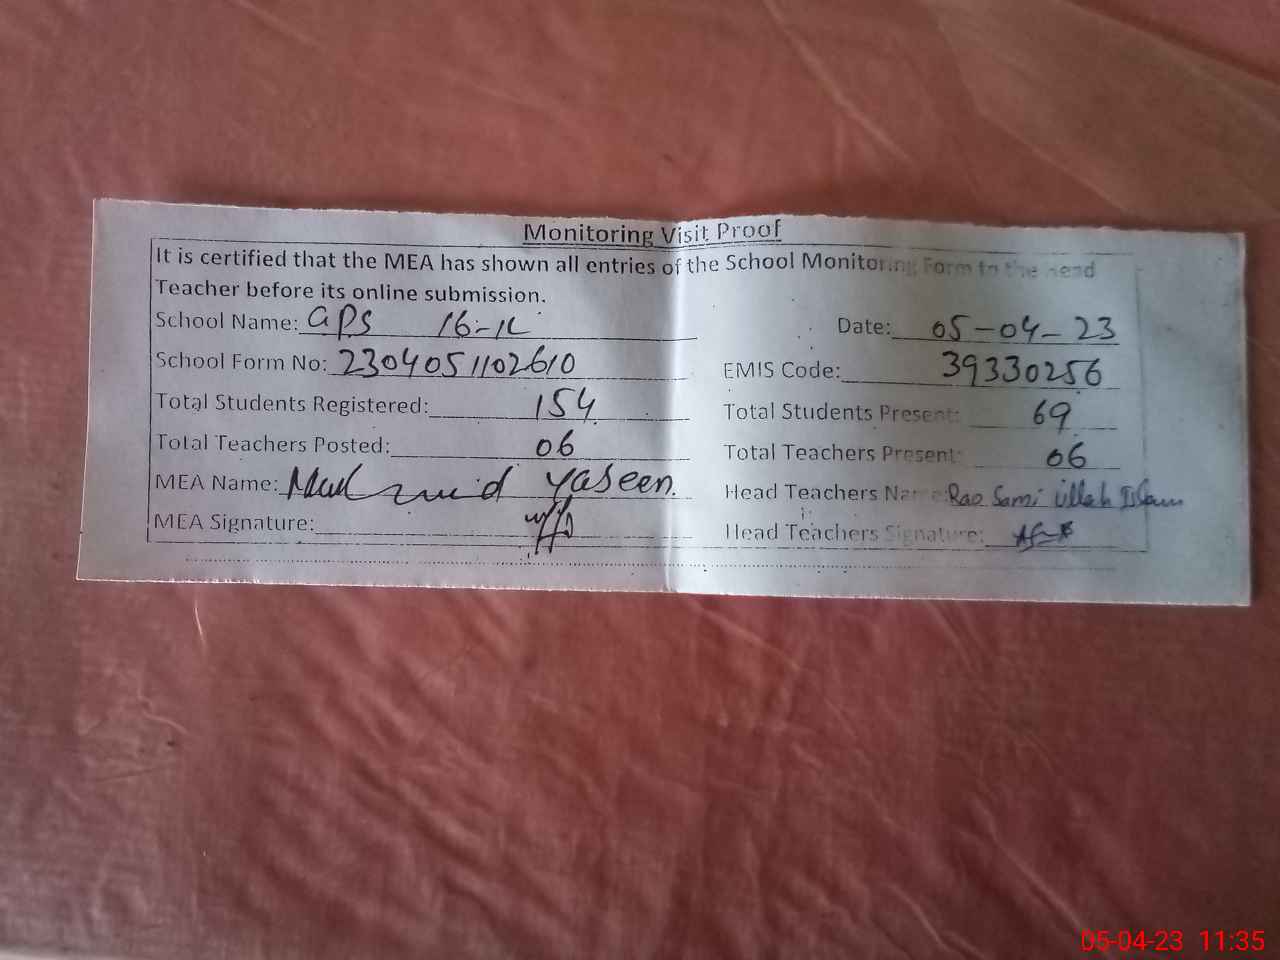 Monitoring Visit Proof
It is certified that the MEA has shown all entries of the School Monitoring Form to the Head
Teacher before its online submission.
School Name: GPS 16-1L Date: 05-04-23
School Form No: 2304051102610 EMIS Code: 39330256
Total Students Registered: 154 Total Students Present: 69
Total Teachers Posted: 06 Total Teachers Present: 06
MEA Name: Yaseen Head Teachers Name: Rao Sami Ullah Islam
MEA Signature: Head Teachers Signature:
05-04-23 11:35